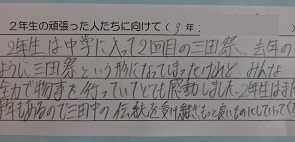 2年生の頑張った人たちに向けて(3年:
2年生は中学に入って2回目の三田祭、去年の
ように三田祭という形になってしまったけれど、みんな
全力で物事を行っていてとても感動しました。2年生はまだ
年もあるので三田中の伝統を受け継ぎもっと良いものにしていってく